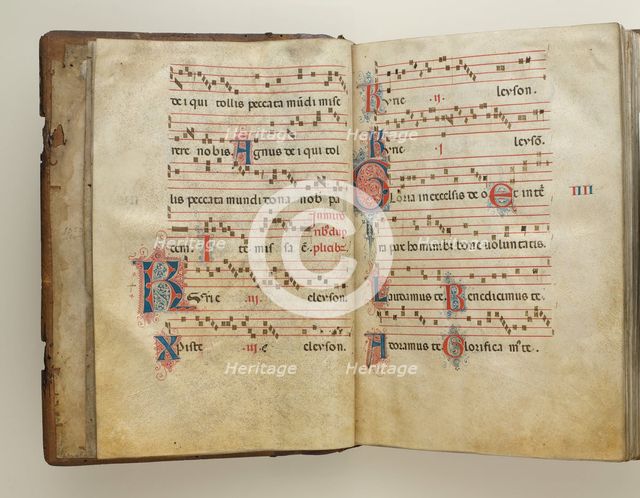 de i qui tollis peccata mũdi mise
rere nobis. Agnus de i qui tol
lis peccata mundi dona nob pa
cem. Ite missa ē.
Kyrie iij. eleyson.
Xpiste iij. e eleyson.
Kyrie ij. leyson.
Kyrie i leysõ.
Gloria in excelsis de o Et in tr̃
IIII
ra pax hominibꝰ bone voluntatis.
Laudamus te. Benedicimus te.
Adoramus te. Glorifica mꝰ te.
Heritage
Heritage
Heritage
Heritage